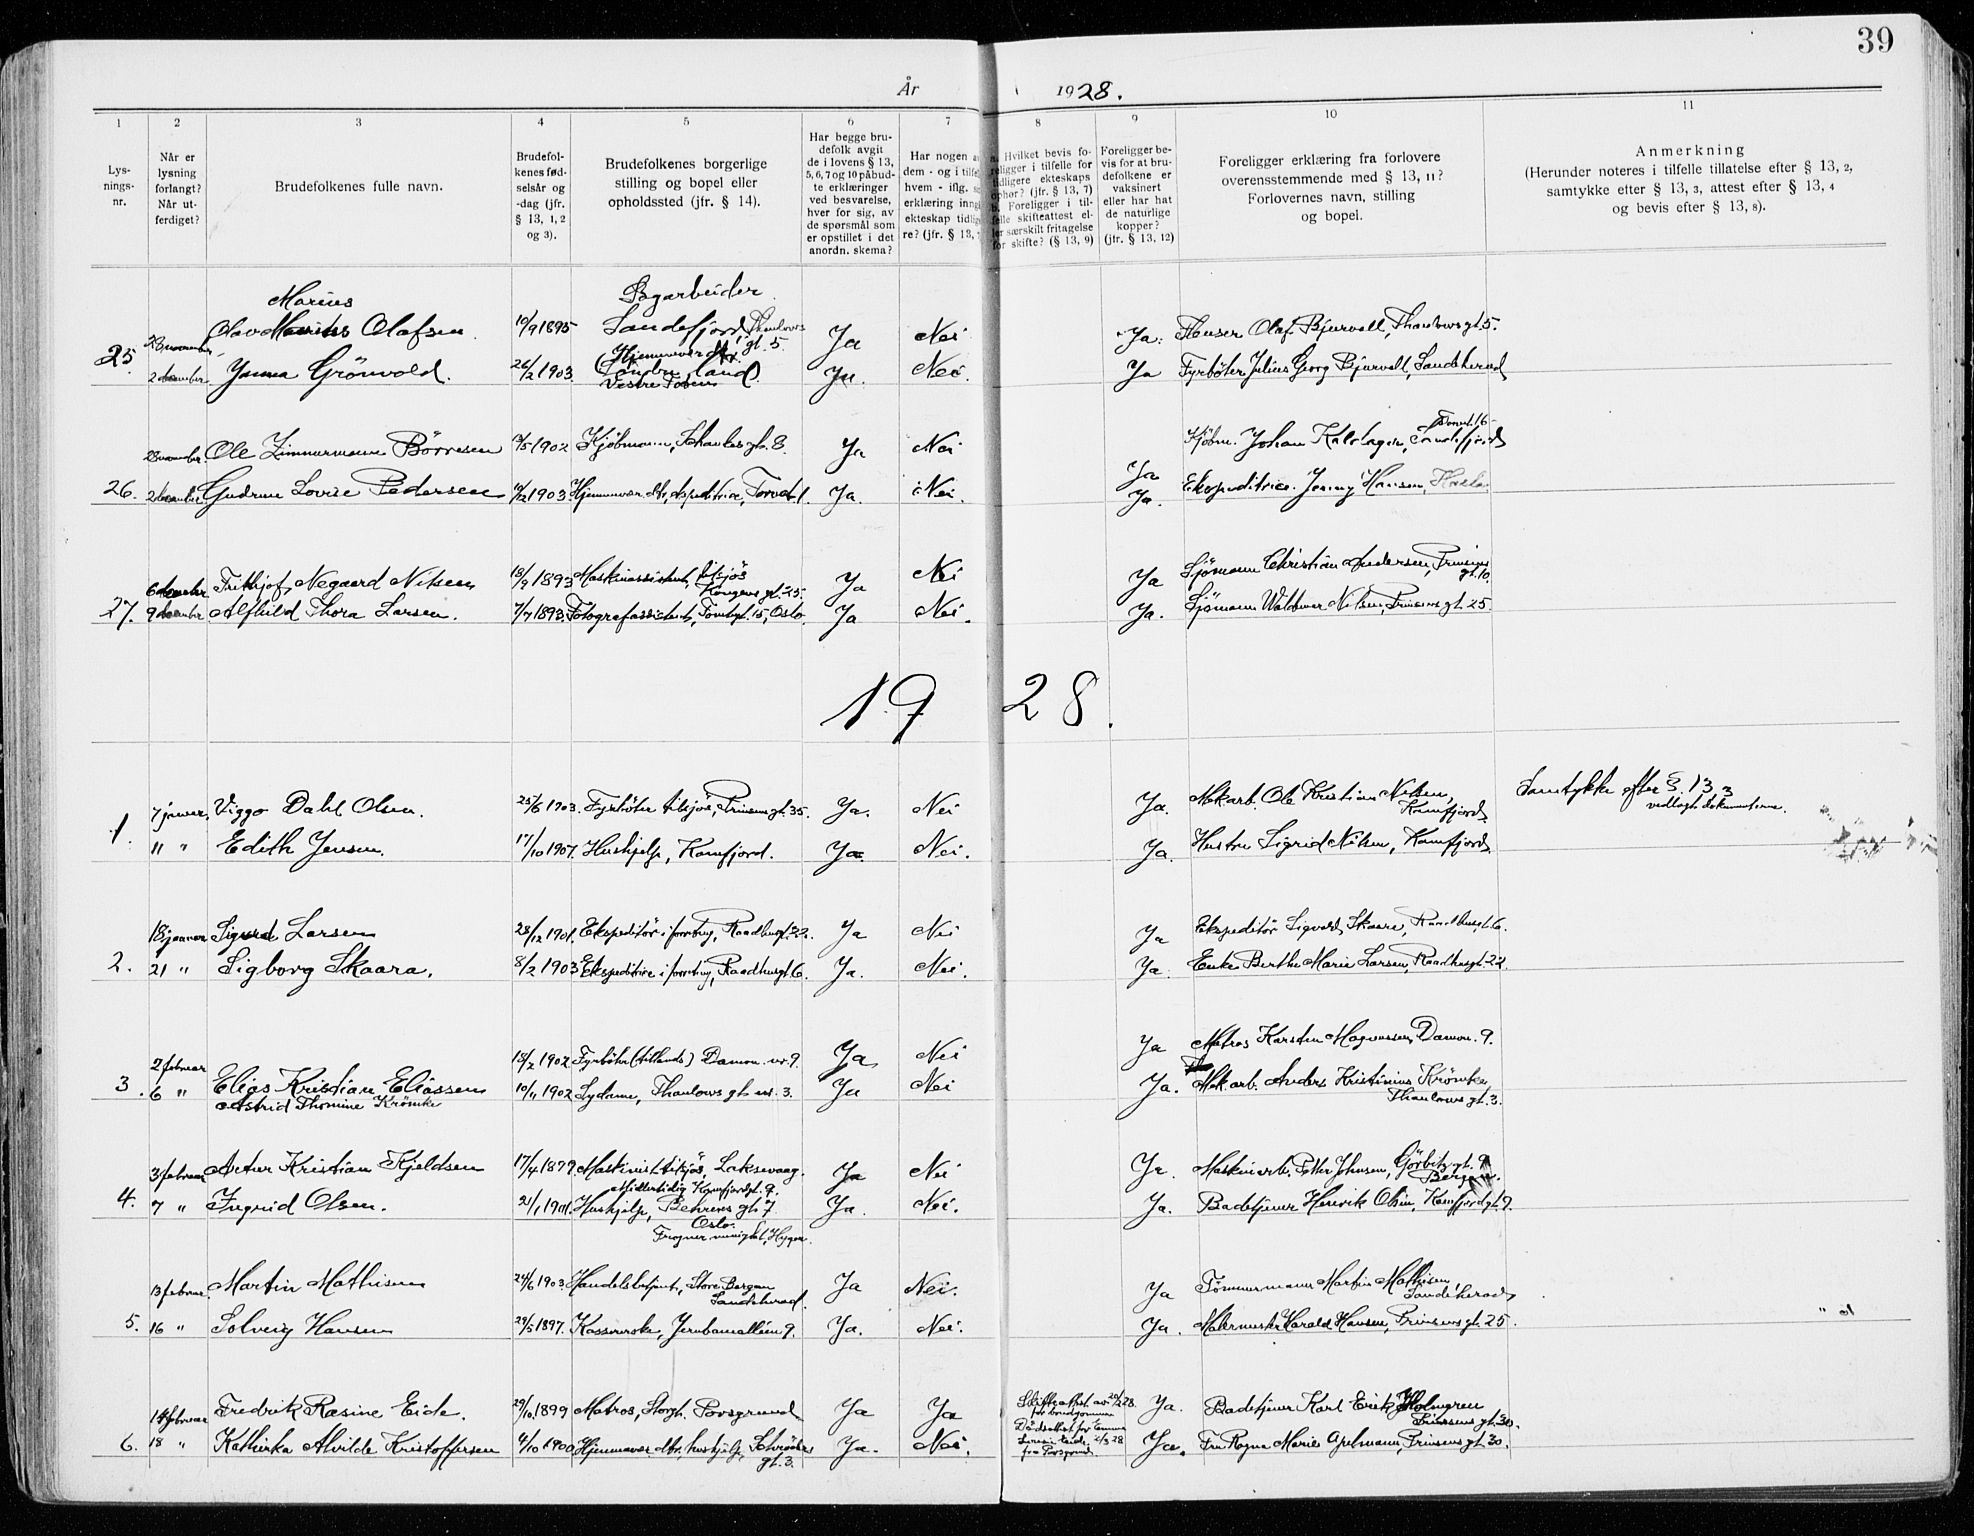 39
År 1928.
1 2 3 4 5 6 7 8 9 10 11
Lysnings-nr.
Når er lysning forlangt? Når utferdiget?
Brudefolkenes fulle navn.
Brudefolkenes fødselsår og -dag (jfr. § 13, 1, 2 og 3).
Brudefolkenes borgerlige stilling og bopel eller opholdssted (jfr. § 14).
Har begge brudefolk avgit de i lovens § 13, 5, 6, 7 og 10 påbudte erklæringer ved besvarelse, hver for sig, av de spørsmål som er opstillet i det anordn. skema?
Har nogen a dem - og i tilfe hvem - iflg. s erklæring inng ekteskap tidlig re? (jfr. § 13,
a. Hvilket bevis foreligger i tilfelle for tidligere ekteskaps ophør? (jfr. § 13, 7) b. Foreligger i tilfelle skifteattest eller særskilt fritagelse for skifte? (§ 13, 9)
Foreligger bevis for at brudefolkene er vaksinert eller har hat de naturlige kopper? (jfr. § 13, 12)
Foreligger erklæring fra forlovere overensstemmende med § 13, 11? Forlovernes navn, stilling og bopel.
Anmerkning (Herunder noteres i tilfelle tillatelse efter § 13, 2, samtykke etter § 13, 3, attest efter § 13, 4 og bevis efter § 13, 8).
Marius Bgarbeider
Olav Olafsen 10/9 1895 Sandefjord, Thaulows gt. 5 Ja Nei Ja. Olaf Bjurvall, Thaulows gt. 5.
25. Grönvold. 26/2 1903 Ja. Nei. Ja Fyrböter Julius Georg Bjurvall, Sandeherad
Ole Zimmermann Börresen /5 1902 Kjöbmann, gt. 8. Ja Nei Ja Kjöbm. Johan Torvet 16
26. Gudrun Lovise Pedersen 1903 Hjemmev. dtr, Torvet 1. Ja. Nei. Ja. Ekspeditrice Jenny Hansen,
6 Frithjof Negaard Nilsen 18/9 1893 Maskinassistent, tilsjös Kongens gt. 25. Ja Nei Ja Sjömann Christian Andersen, Prinsens gt. 10.
27. 9 Alfhild Thora Larsen. 7/7 1893. Fotografassistent, 15, Oslo. Ja Nei. Ja. Sjömann Waldemar Nilsen, Prinsens gt. 25.
1928.
7 januar, Viggo Dahl Olsen. 25/6 1903. Fyrböter tilsjös, Prinsens gt. 35. Ja. Nei Ja. Mekarb. Ole Kristian Nilsen, Kamfjord. Samtykke efter § 13, 3 vedlagt dokumentene.
1. 11 " Edith Jensen. 17/10 1907. Hushjelp, Kamfjord. Ja Nei. Ja. Hustru Sigrid Nilsen, Kamfjord.
18 januar Sigurd Larsen 28/12 1901. Ekspeditör i forretng, Raadhusgt. 22. Ja Nei Ja Ekspeditör Sigvard Skaara, Raadhusgt. 6.
2. 21 " Sigborg Skaara. 8/2 1903 Ekspeditrice i forretng, Raadhusgt 6. Ja. Nei. Ja. Enke Berthe Marie Larsen, Raadhusgt. 22.
2 februar 18/2 1902 Fyrböter (tillands) Damm. nr. 9. Ja Nei Ja Matros Karsten Magnussen, Damm. 9.
3. 6 " Elias Kristian Eliassen 10/11 1902 Sydame, Thaulows gt. nr. 3. Ja Nei Ja. Mek. arb. Anders Kristinius Krömke, Thaulows gt. 3.
Astrid Thomine Krömke
3 februar Artur Kristian Kjeldsen 17/4 1879. Maskinist tilsjös, Laksevaag. Ja Nei Ja. Maskinarb. Petter Johnsen, Görbitz gt. 9 Bergen.
Midlertidig Kamfjordgt. 9.
4. 7 " Ingrid Olsen. 21/1 1901. Hushjelp, Behrens gt. 7 Oslo. Ja. Nei. Ja. Badetjener Henrik Olsen, Kamfjordgt. 9.
Frogner menighet,
13 februar. Martin Mathisen 24/6 1903. Handelsbetjent, Store Bergan Sandeherad. Ja Nei. Ja Tömmermann Martin Mathisen, Sandeherad
5. 16 " Solveig Hansen 29/5 1897. Kassererske, Jernbanealléen 9. Ja. Nei. Ja. Malermester Harald Hansen, Prinsens gt. 25.
14 februar Fredrik Rasine Eide. 29/10 1899 Matros, Storgt. Porsgrund Ja Ja Skifteattest av 20/2 28 for brudgommen Ja. Badetjener Karl Erik Holmgren Prinsens gt. 30.
6. 18 " Kathinka Alvilde Kristoffersen 4/10 1900 Hjemmevær. dtr, hushjelp, Schröders gt. 3. Ja. Nei. Dödsattest for Eide 2/3 28 fra Porsgrund. Ja. Fru Ragna Marie Apelmann, Prinsens gt. 30.